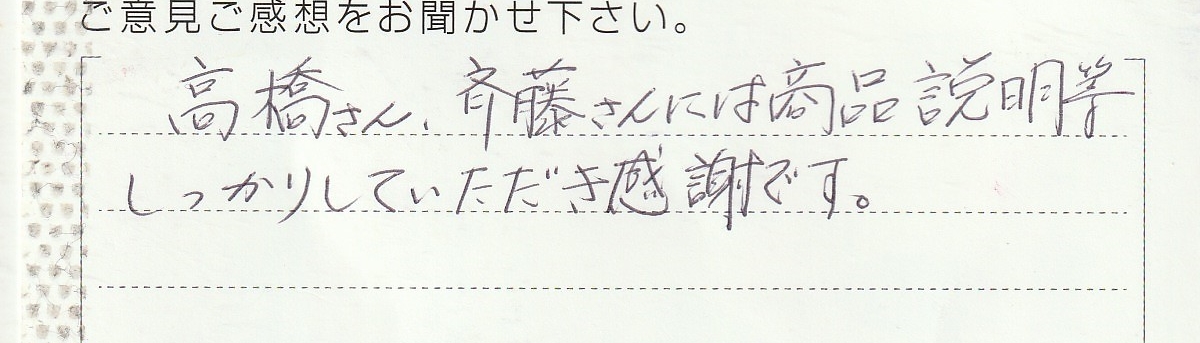 ご意見ご感想をお聞かせ下さい。
高橋さん、斉藤さんには商品説明等
しっかりしていただき感謝です。